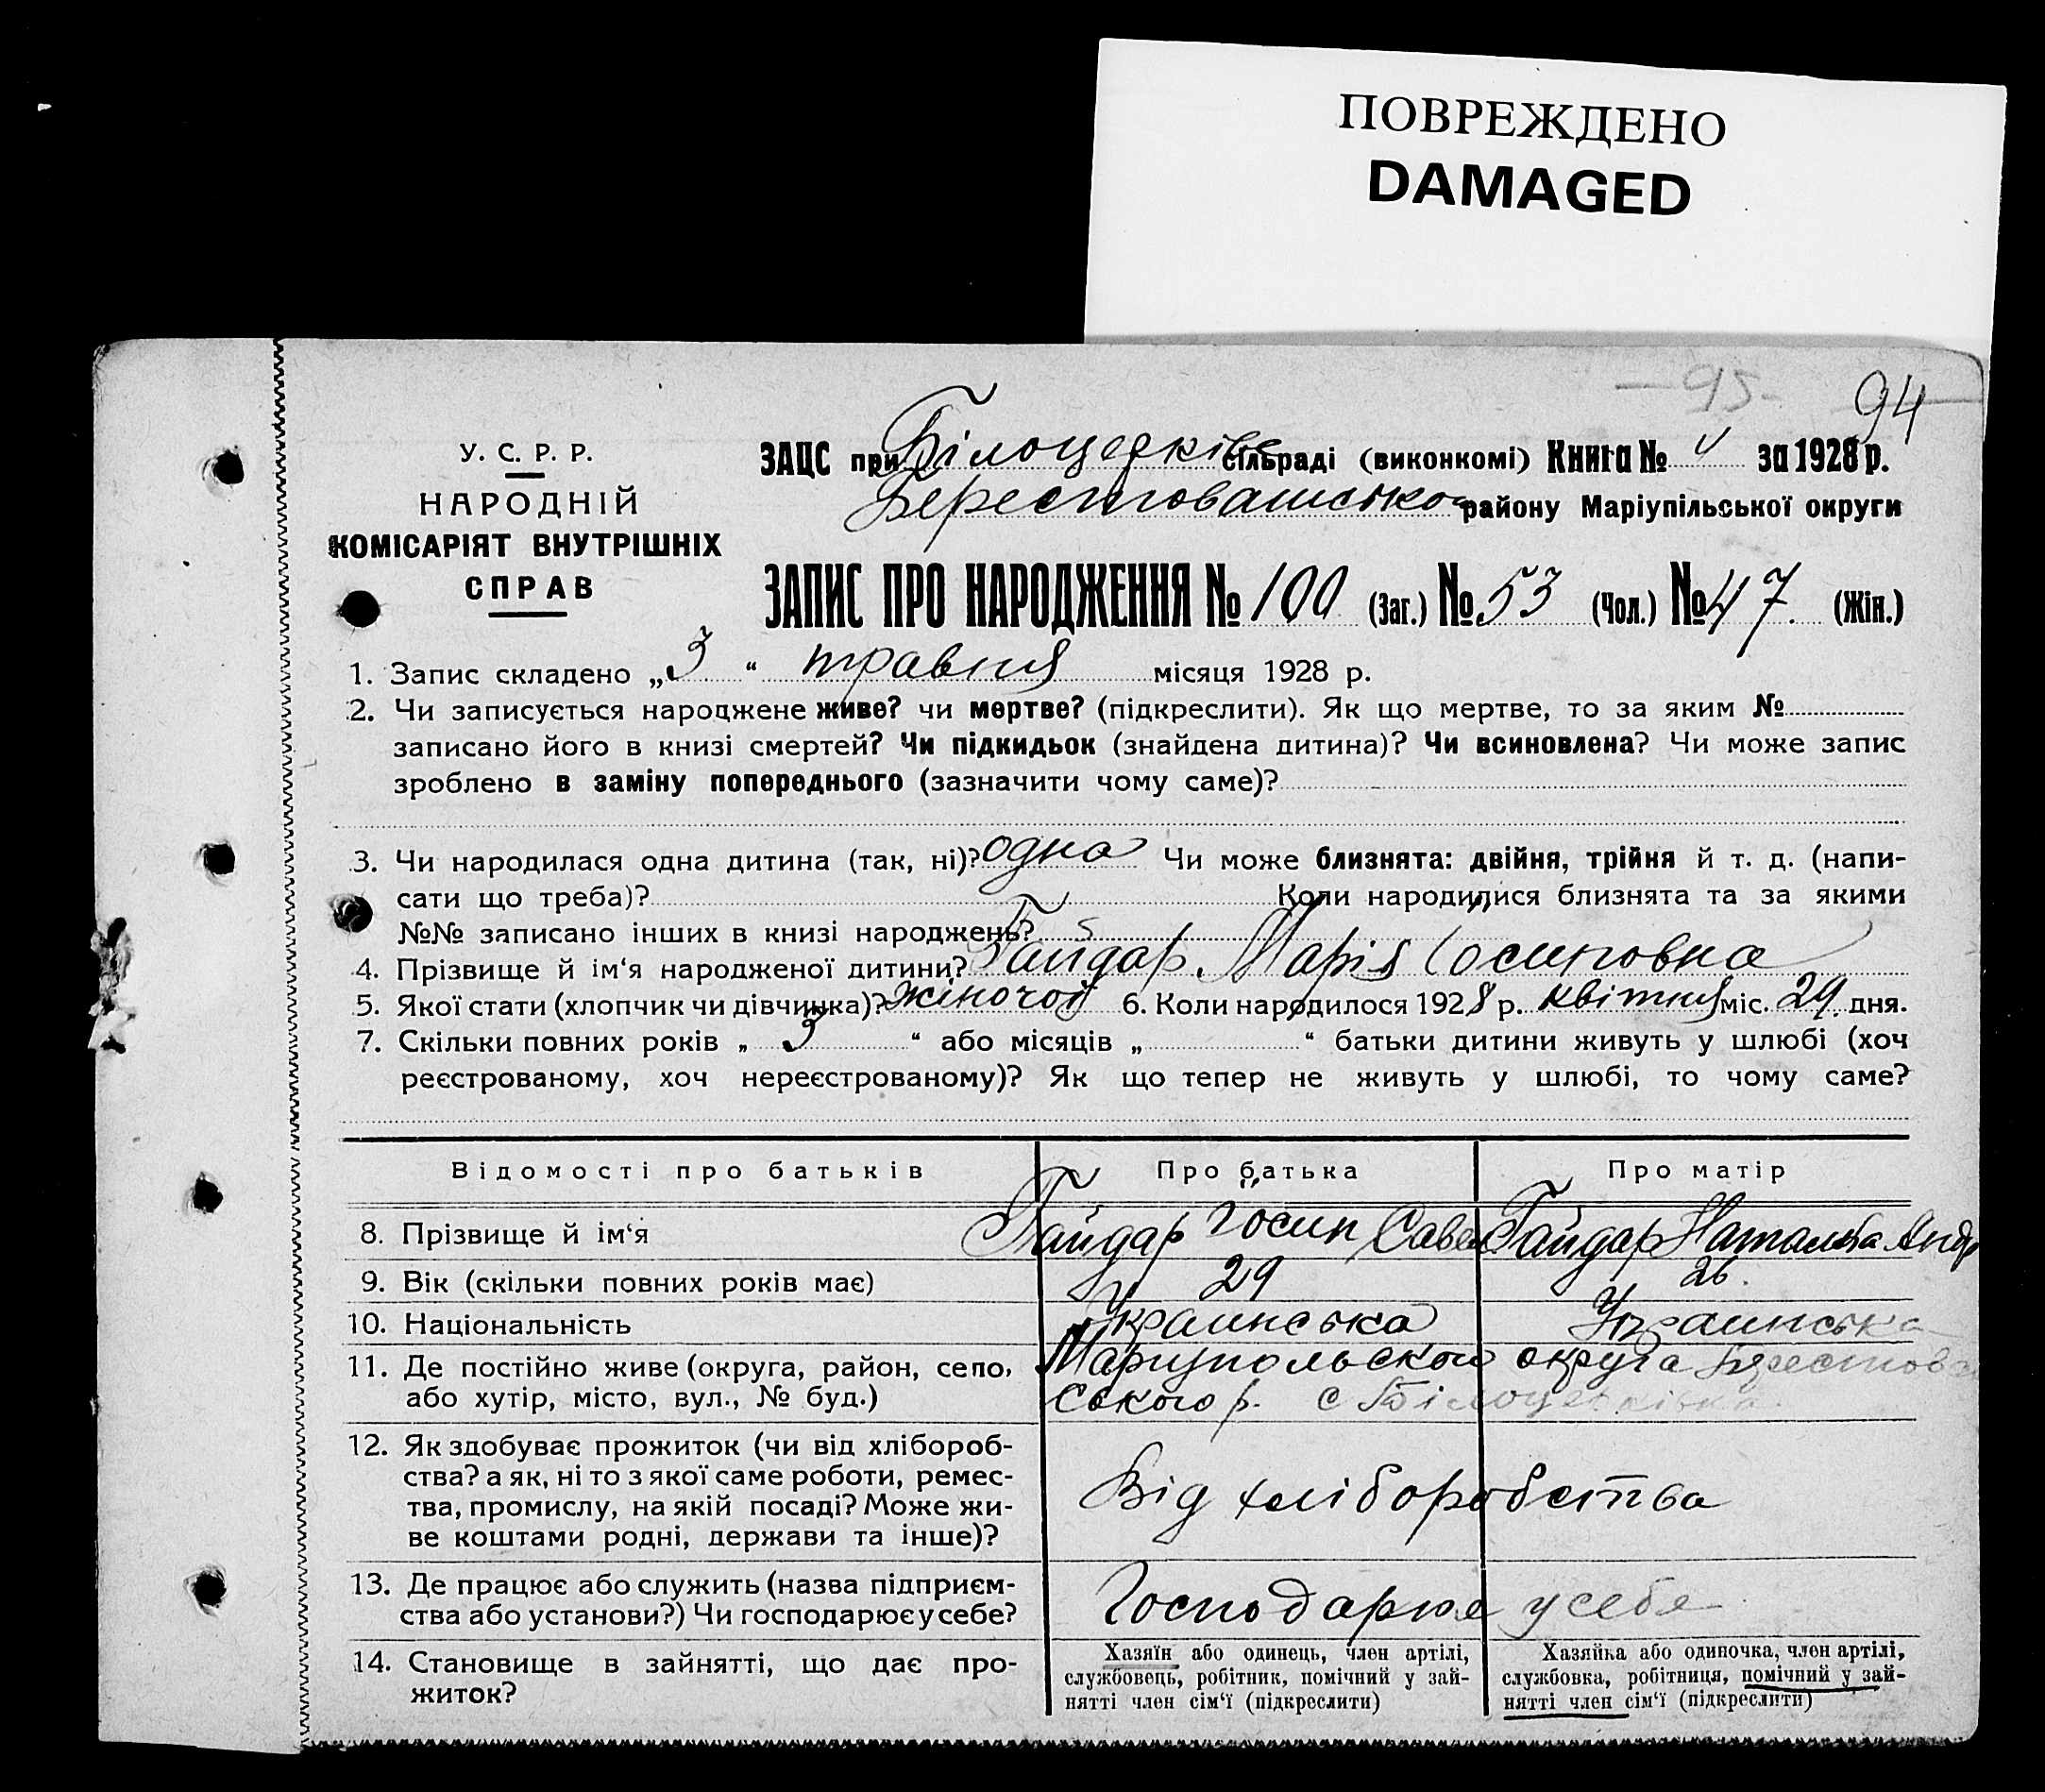 ПОВРЕЖДЕНО
DAMAGED
-95- 94
У. С. Р. Р.
НАРОДНІЙ
КОМІСАРІЯТ ВНУТРІШНІХ
СПРАВ
ЗАЦС при Білоцерківс сільраді (виконкомі) Книга № за 1928 р.
району Маріупільської округи
ЗАПИС ПРО НАРОДЖЕННЯ № 100 (Заг.) № 53 (Чол.) № 47. (Жін.)
1. Запис складено „3“ травня місяця 1928 р.
2. Чи записується народжене живе? чи мертве? (підкреслити). Як що мертве, то за яким №
записано його в книзі смертей? Чи підкидьок (знайдена дитина)? Чи всиновлена? Чи може запис
зроблено в заміну попереднього (зазначити чому саме)?
3. Чи народилася одна дитина (так, ні)? одна Чи може близнята: двійня, трійня й т. д. (напи-
сати що треба)? Коли народилися близнята та за якими
№№ записано інших в книзі народжень?
4. Прізвище й ім‘я народженої дитини? Гайдар Марія Йосиповна
5. Якої стати (хлопчик чи дівчинка)? жіночої 6. Коли народилося 1928 р. квітня міс. 29. дня.
7. Скільки повних років „ 3 “ або місяців „ “ батьки дитини живуть у шлюбі (хоч
реєстрованому, хоч нереєстрованому)? Як що тепер не живуть у шлюбі, то чому саме?
Відомості про батьків Про батька Про матір
8. Прізвище й ім‘я Гайдар Йосип Саве Гайдар Наталка Андр
9. Вік (скільки повних років має) 29 26.
10. Національність Украинська Украинська
11. Де постійно живе (округа, район, село, Мариупольской округа Берестова
або хутір, місто, вул., № буд.) ського р. с Білоцерківка.
12. Як здобуває прожиток (чи від хлібороб-
ства? а як, ні то з якої саме роботи, ремес-
тва, промислу, на якій посаді? Може жи-
ве коштами родні, держави та інше)?
Від хліборобства
13. Де працює або служить (назва підприєм-
ства або установи?) Чи господарює у себе?
Господарює у себе
14. Становище в зайнятті, що дає про-
житок?
Хазяїн або одинець, член артілі,
службовець, робітник, помічний у зай-
нятті член сім‘ї (підкреслити)
Хазяйка або одиночка, член артілі,
службовка, робітниця, помічний у зай-
нятті член сім‘ї (підкреслити)